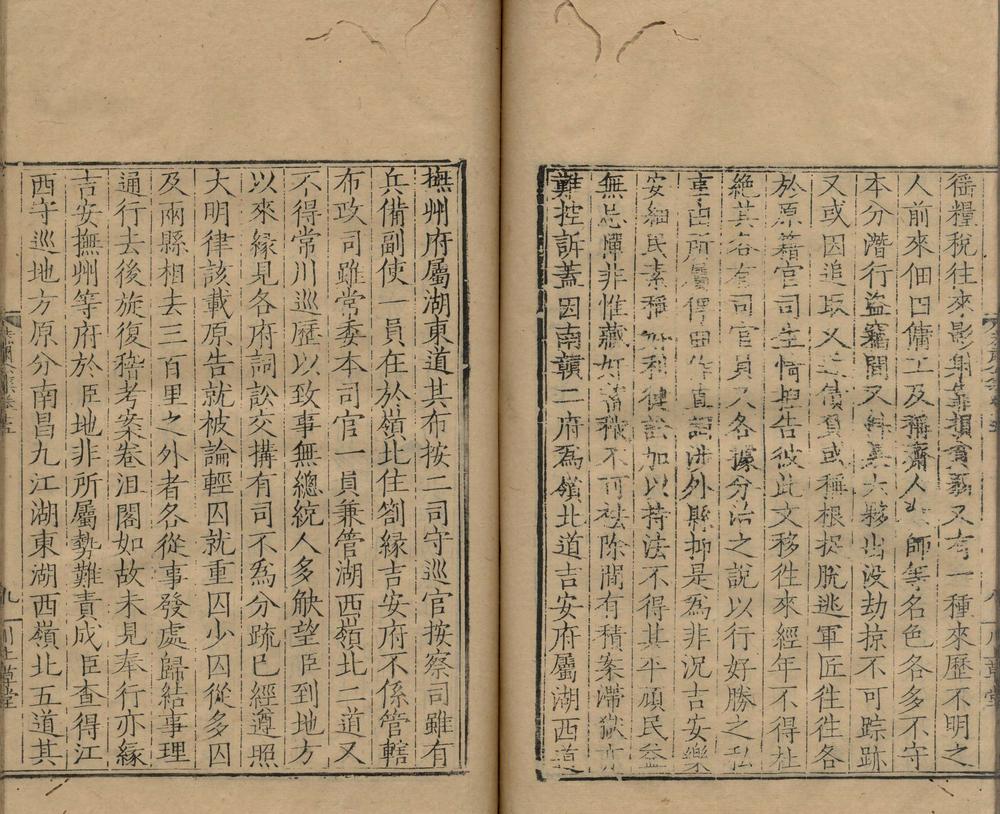 徭糧稅往來影射無損實義又有一種來歷不明之
人前來佃田傭工及稱齋人 師等名色各多不守
本分潛行盜竊間又糾集大夥出没劫掠不可踪跡
又或因追取久 債負或稱根捉脫逃軍匠徃徃各
於原籍官司 告彼此文移徃來經年不得杜
絶其各有司官員又各據分治之說以行好勝之私
 所屬 田 外縣抑是爲非況吉安樂
安細民素稱 利健訟加以持法不得其平頑民益
無忌憚非惟藏奸蓄穢不可袪除間有積案滯獄亦
難控訴蓋因南贛二府爲嶺北道吉安府屬湖西道
撫州府屬湖東道其布按二司守巡官按察司雖有
兵備副使一員在於嶺北住劄緣吉安府不係管轄
布政司雖常委本司官一員兼管湖西嶺北二道又
不得常川巡歷以致事無總統人多觖望臣到地方
以來緣見各府詞訟交搆有司不爲分疏已經遵照
大明律該載原告就被論輕囚就重囚少囚從多囚
及兩縣相去三百里之外者各從事發處歸結事理
通行去後旋復稡考案卷沮閣如故未見奉行亦緣
吉安撫州等府於臣地非所屬勢難責成臣查得江
西守巡地方原分南昌九江湖東湖西嶺北五道其
九